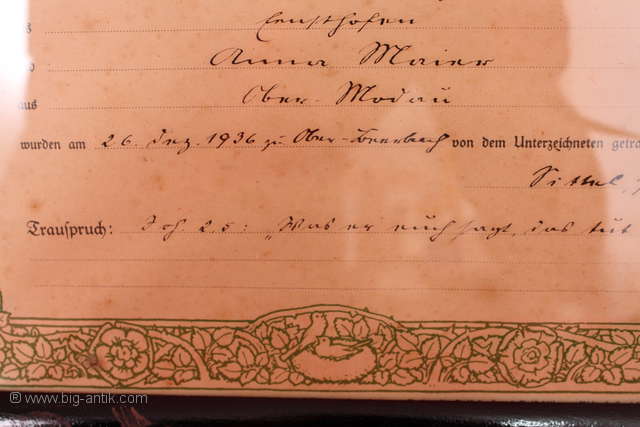 Ernsthofen
Anna Maier
aus Ober-Modau
wurden am 26. Dez. 1936 zu Ober-Beerbach von dem Unterzeichneten getra
Sittel,
Trauspruch: Joh. 2,5: „Was er euch sagt, das tut
® www.big-antik.com